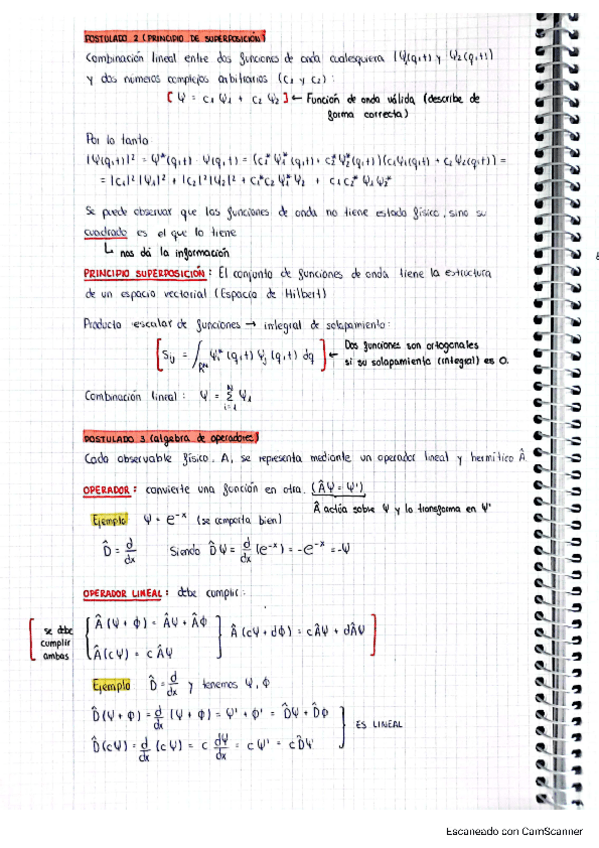 POSTULADO 2 (PRINCIPIO DE SUPERPOSICIÓN)
Combinación lineal entre dos funciones de onda cualesquiera Ψ₁(q,t) y Ψ₂(q,t)
y dos números complejos arbitrarios (c₁ y c₂):
[Ψ = c₁Ψ₁ + c₂Ψ₂] ← Función de onda válida (describe de
forma correcta)
Por lo tanto
|Ψ(q,t)|² = Ψ*(q,t) · Ψ(q,t) = (c₁*Ψ₁*(q,t) + c₂*Ψ₂*(q,t))(c₁Ψ₁(q,t) + c₂Ψ₂(q,t)) =
= |c₁|²|Ψ₁|² + |c₂|²|Ψ₂|² + c₁*c₂Ψ₁*Ψ₂ + c₁c₂*Ψ₁Ψ₂*
Se puede observar que las funciones de onda no tiene estado físico, sino su
cuadrado es el que lo tiene
↳ nos dá la información
PRINCIPIO SUPERPOSICIÓN: El conjunto de funciones de onda tiene la estructura
de un espacio vectorial (Espacio de Hilbert)
Producto escalar de funciones → integral de solapamiento:
[Sij = ∫ Ψi*(q,t) Ψj(q,t) dq] ← Dos funciones son ortogonales
si su solapamiento (integral) es 0.
Combinación lineal: Ψ = Σ Ψ₁
POSTULADO 3 (algebra de operadores)
Cada observable físico, A, se representa mediante un operador lineal y hermítico Â.
OPERADOR: convierte una función en otra. (ÂΨ = Ψ')
Â actúa sobre Ψ y lo transforma en Ψ'
Ejemplo Ψ = e⁻ˣ (se comporta bien)
D̂ = d/dx Siendo D̂Ψ = d/dx (e⁻ˣ) = -e⁻ˣ = -Ψ
OPERADOR LINEAL: debe cumplir:
se debe cumplir ambas { Â(Ψ + Φ) = ÂΨ + ÂΦ } Â(cΨ + dΦ) = cÂΨ + dÂΨ
Â(cΨ) = cÂΨ
Ejemplo D̂ = d/dx y tenemos Ψ, Φ
D̂(Ψ + Φ) = d/dx (Ψ + Φ) = Ψ' + Φ' = D̂Ψ + D̂Φ
ES LINEAL
D̂(cΨ) = d/dx (cΨ) = c dΨ/dx = cΨ' = cD̂Ψ
Escaneado con CamScanner